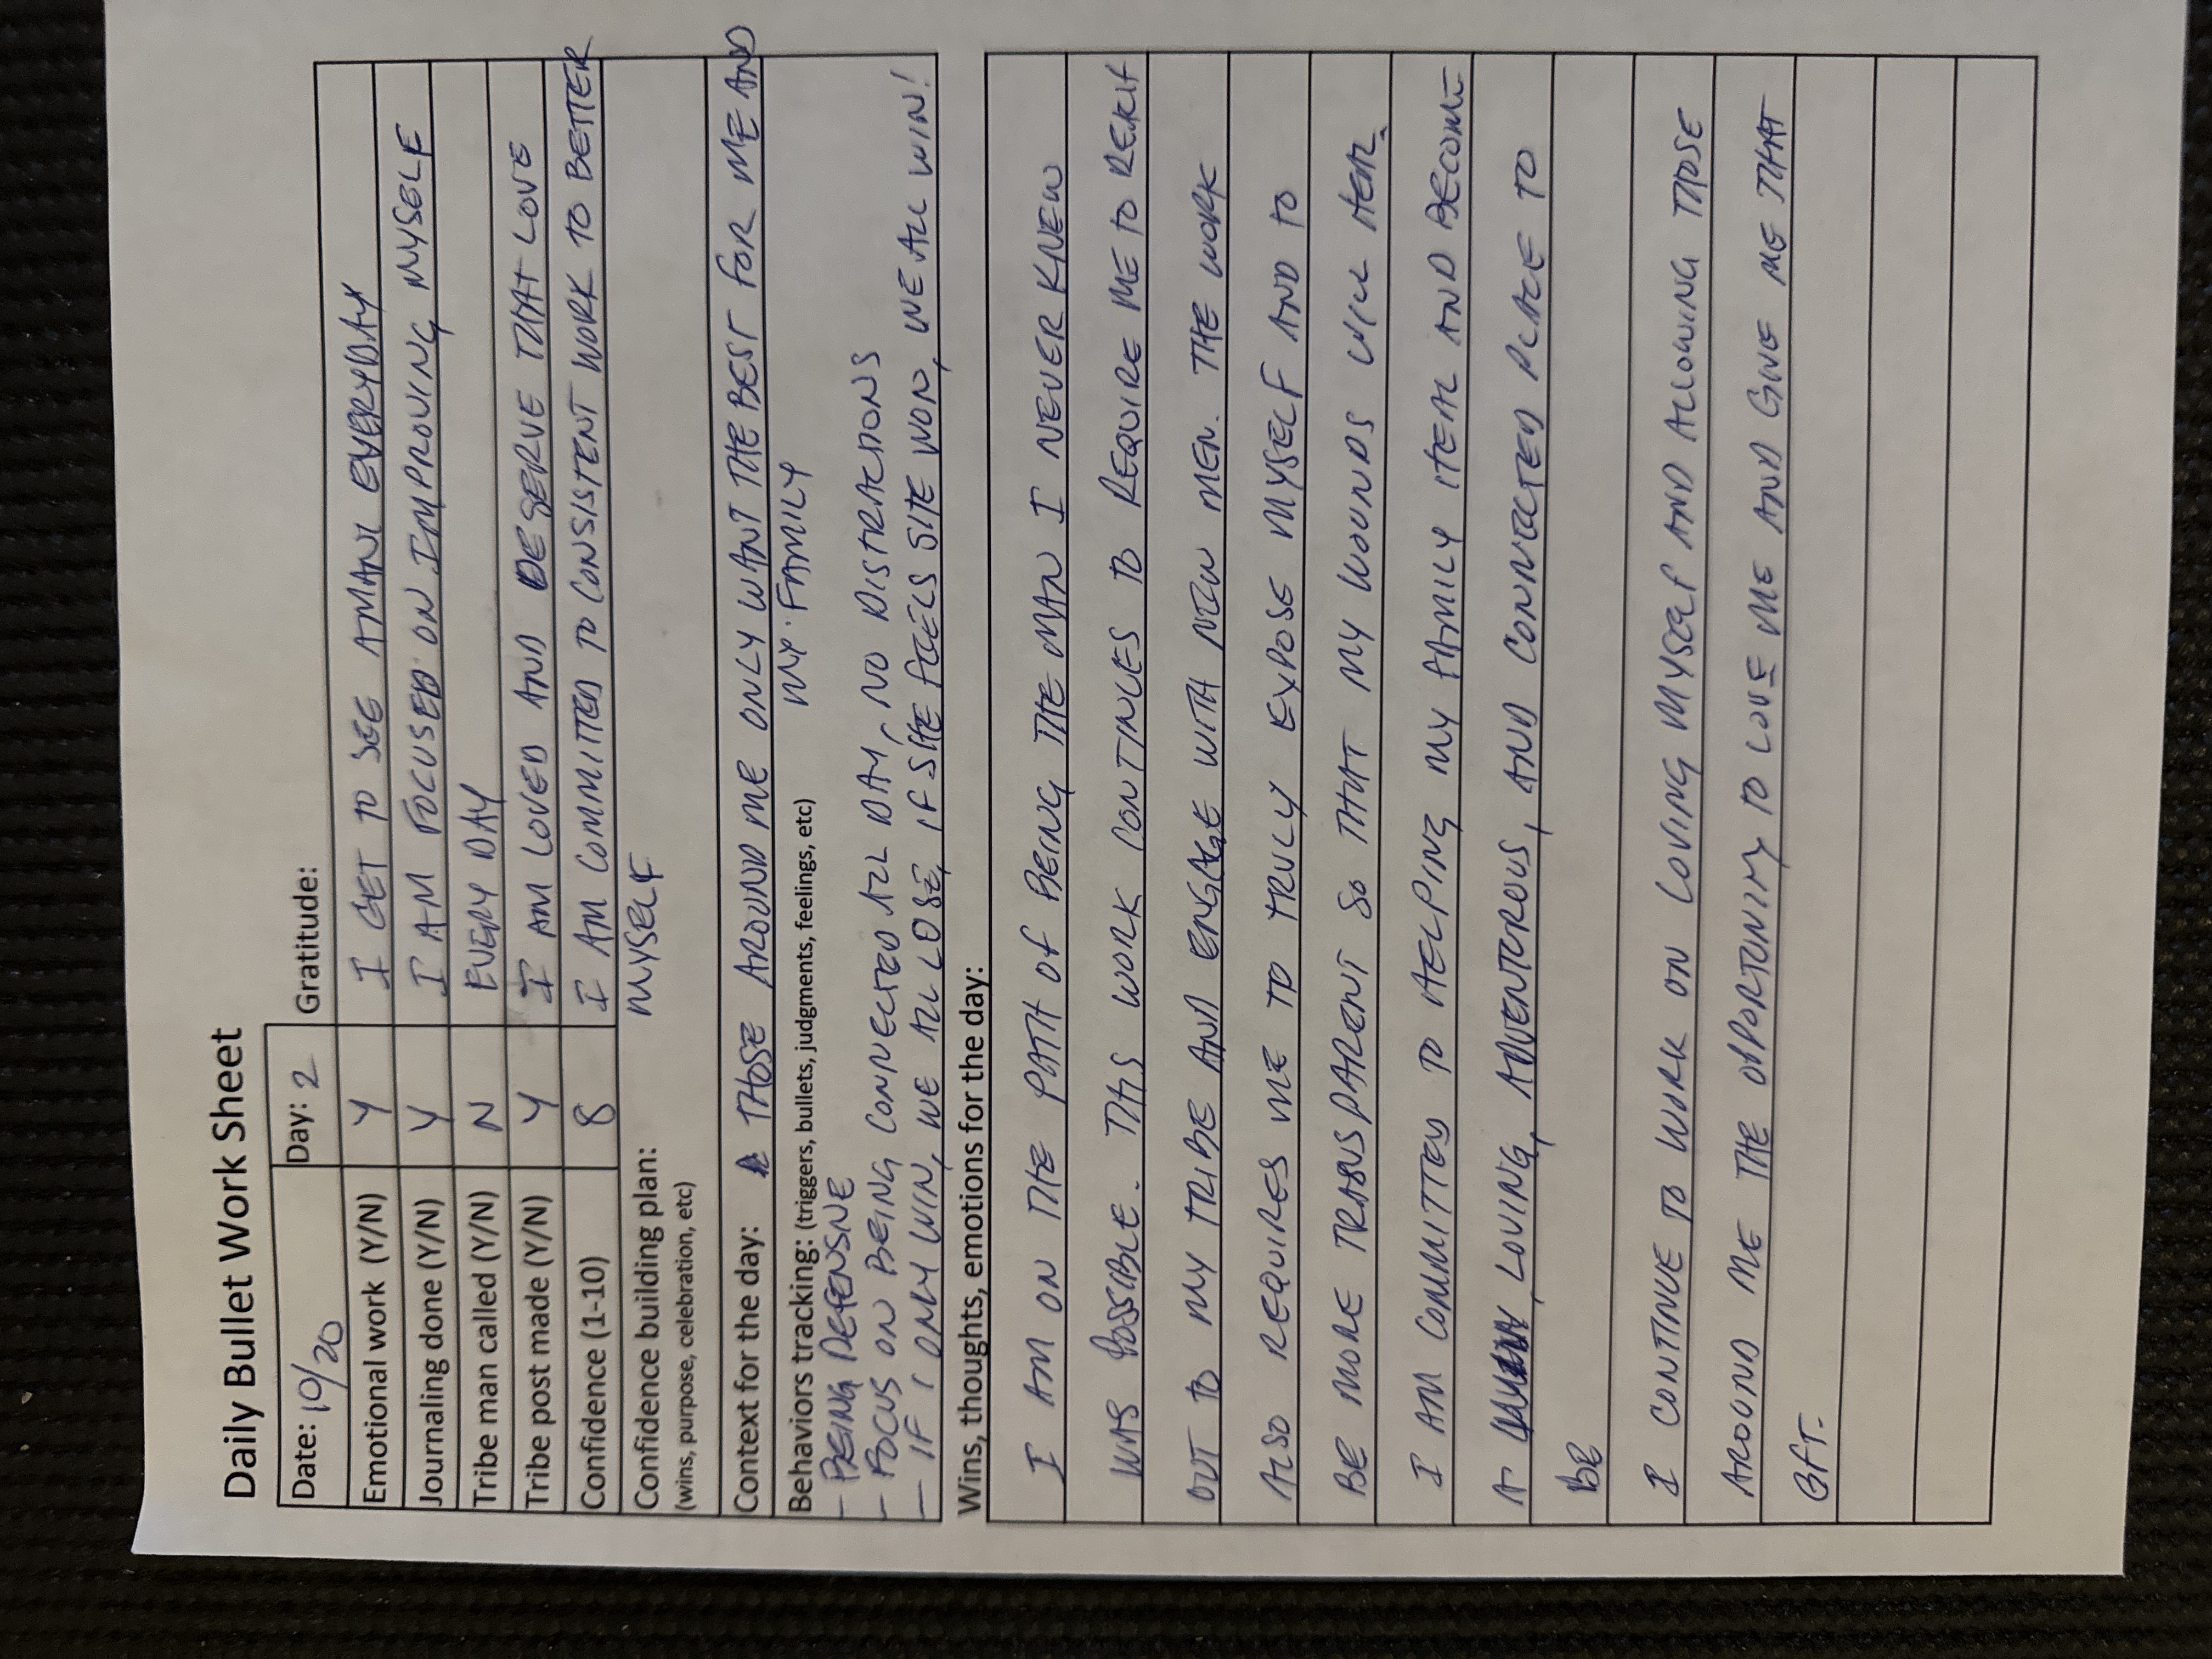 Daily Bullet Work Sheet
Date: 10/20 Day: 2 Gratitude:
Emotional work (Y/N) Y I GET TO SEE AMANI EVERYDAY
Journaling done (Y/N) Y I AM FOCUSED ON IMPROVING MYSELF
Tribe man called (Y/N) N EVERY DAY
Tribe post made (Y/N) Y I AM LOVED AND DESERVE THAT LOVE
Confidence (1-10) 8 I AM COMMITTED TO CONSISTENT WORK TO BETTER
Confidence building plan: MYSELF
(wins, purpose, celebration, etc)
Context for the day: THOSE AROUND ME ONLY WANT THE BEST FOR ME AND
MY FAMILY
Behaviors tracking: (triggers, bullets, judgments, feelings, etc)
- BEING DEFENSIVE
- FOCUS ON BEING CONNECTED ALL DAY, NO DISTRACTIONS
- IF I ONLY WIN, WE ALL LOSE, IF SHE FEELS SHE WON, WE ALL WIN!
Wins, thoughts, emotions for the day:
I AM ON THE PATH OF BEING THE MAN I NEVER KNEW
WAS POSSIBLE. THIS WORK CONTINUES TO REQUIRE ME TO REACH
OUT TO MY TRIBE AND ENGAGE WITH NEW MEN. THE WORK
ALSO REQUIRES ME TO TRULY EXPOSE MYSELF AND TO
BE MORE TRANSPARENT SO THAT MY WOUNDS WILL HEAL.
I AM COMMITTED TO HELPING MY FAMILY HEAL AND BECOME
A LOVING, ADVENTEROUS, AND CONNECTED PLACE TO
BE
I CONTINUE TO WORK ON LOVING MYSELF AND ALLOWING THOSE
AROUND ME THE OPPORTUNITY TO LOVE ME AND GIVE ME THAT
GIFT.